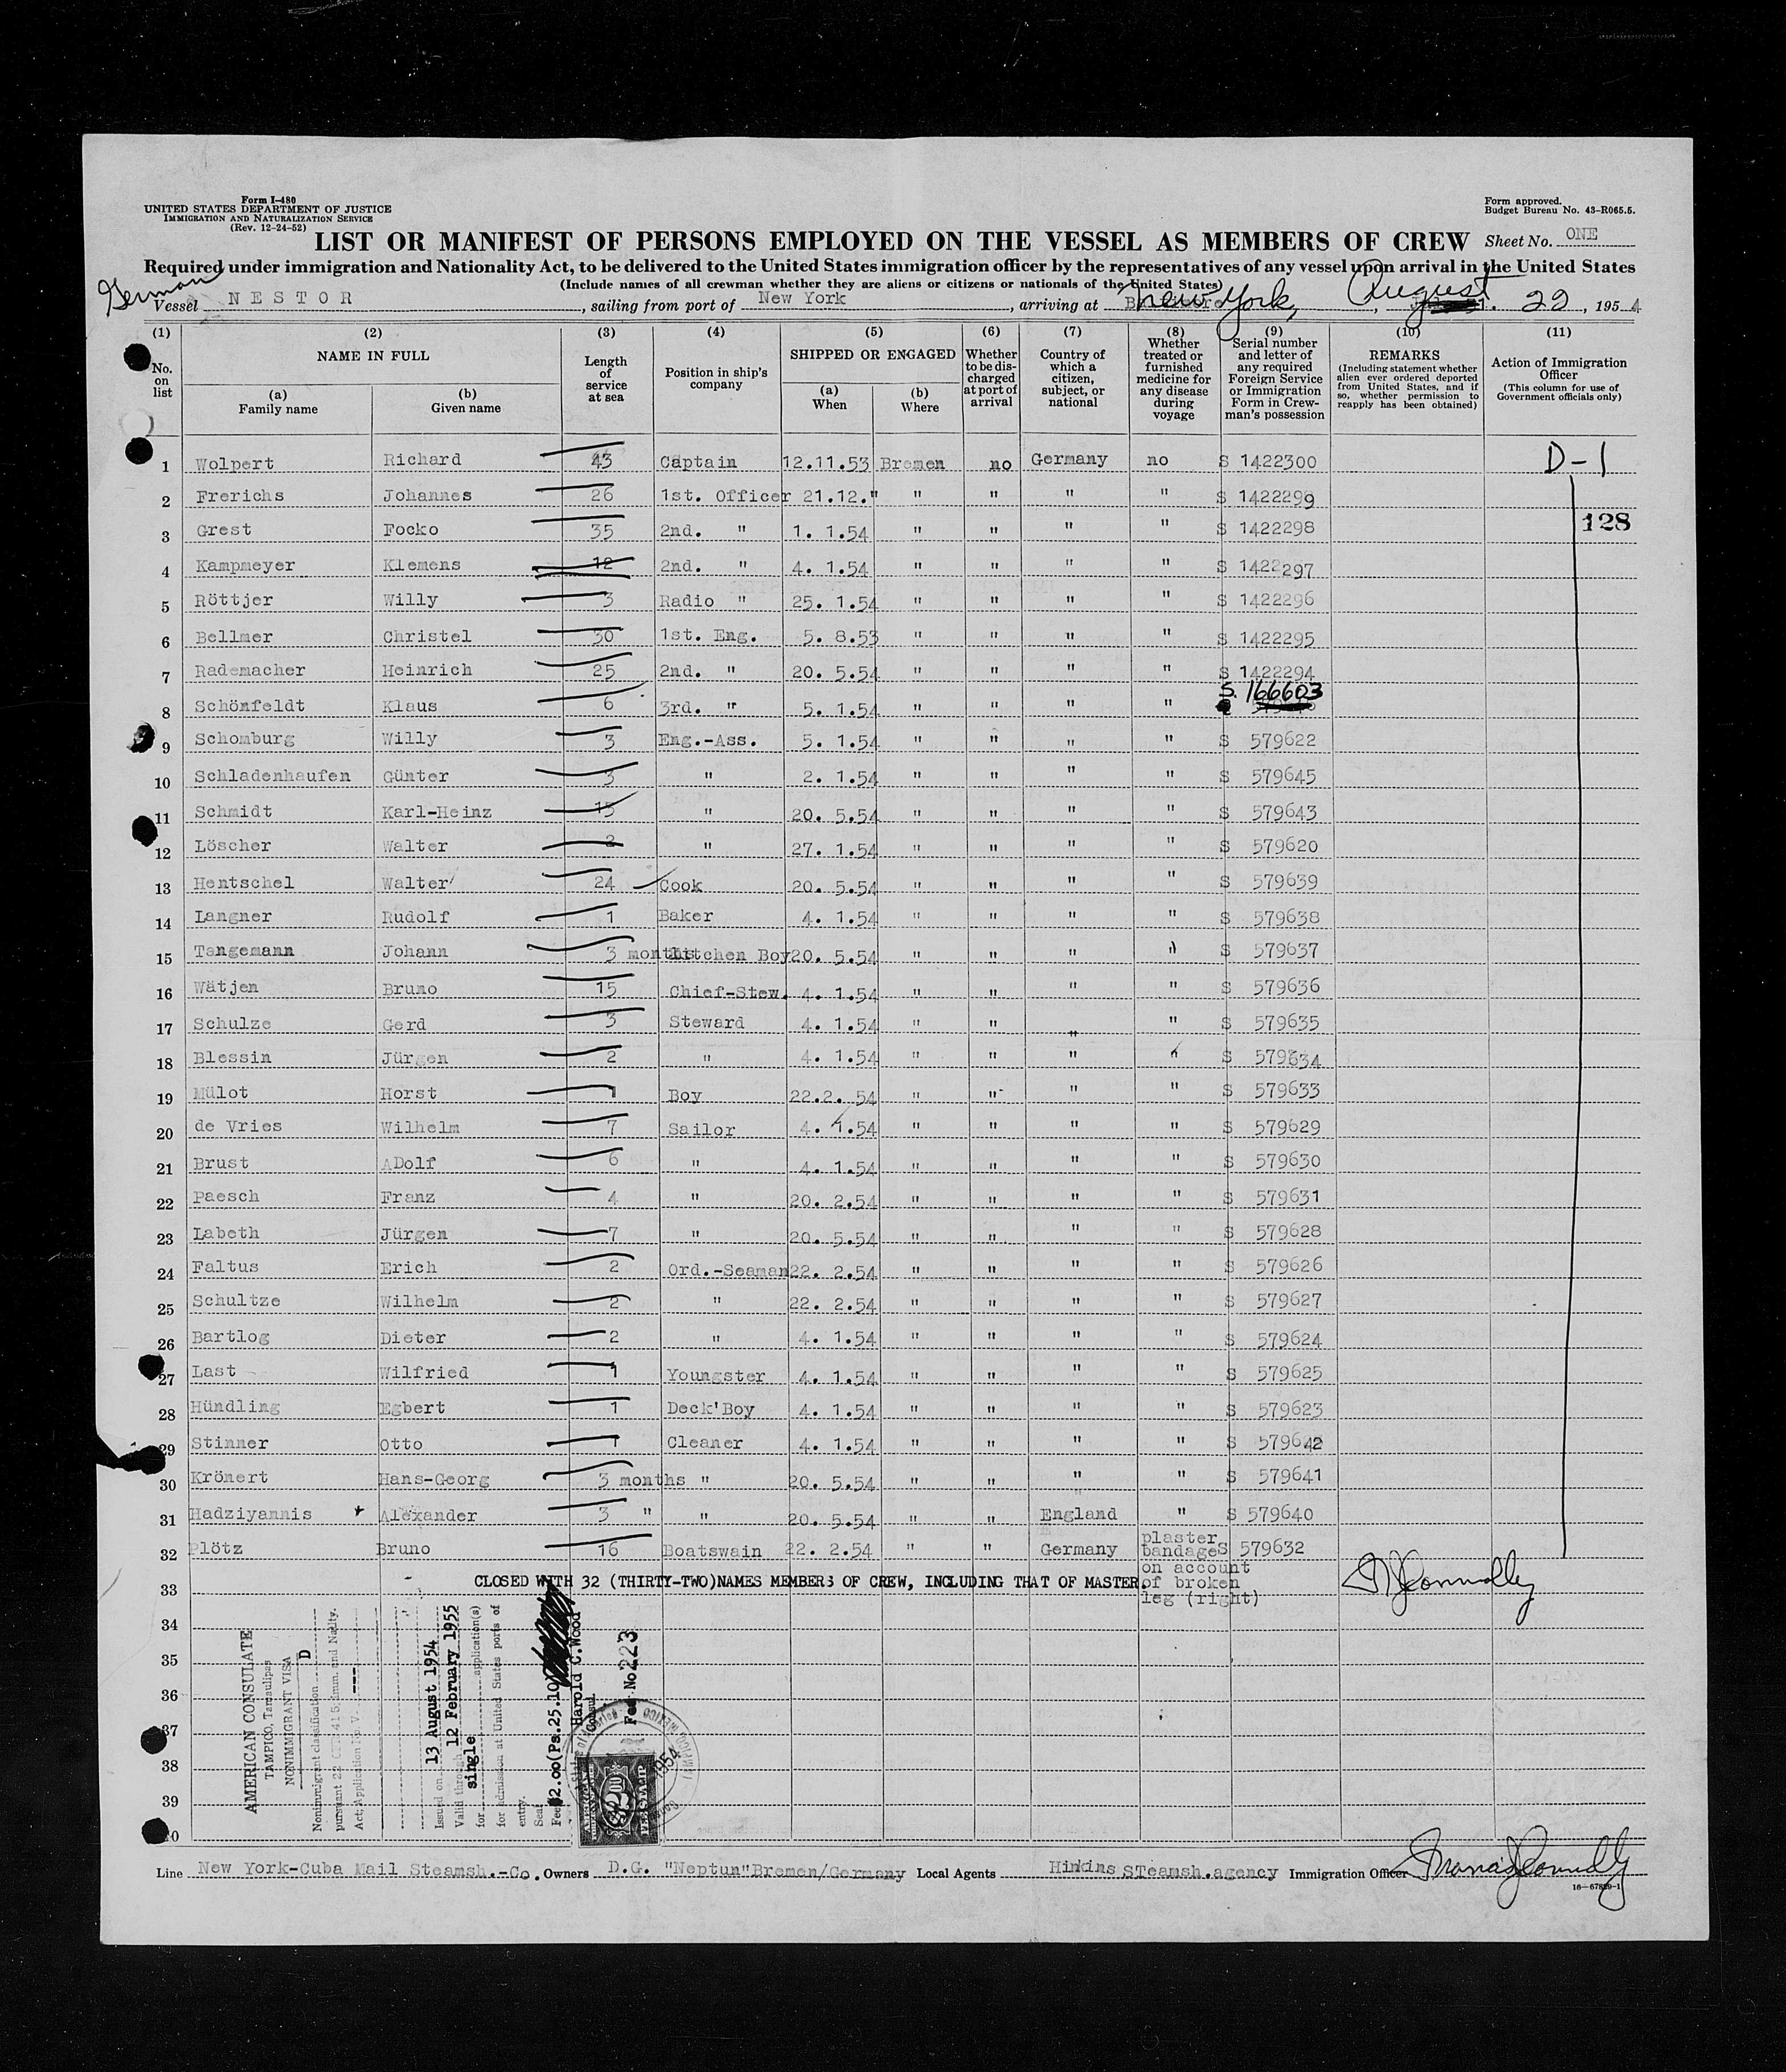 Form I-480
UNITED STATES DEPARTMENT OF JUSTICE
IMMIGRATION AND NATURALIZATION SERVICE
(Rev. 12-24-52)
Form approved.
Budget Bureau No. 43-R065.5.
LIST OR MANIFEST OF PERSONS EMPLOYED ON THE VESSEL AS MEMBERS OF CREW Sheet No. ONE
Required under immigration and Nationality Act, to be delivered to the United States immigration officer by the representatives of any vessel upon arrival in the United States
(Include names of all crewman whether they are aliens or citizens or nationals of the United States)
German
Vessel NESTOR, sailing from port of New York, arriving at New York, August 22, 1954
(1) (2) (3) (4) (5) (6) (7) (8) (9) (10) (11)
No. on list
NAME IN FULL
(a) Family name
(b) Given name
Length of service at sea
Position in ship's company
SHIPPED OR ENGAGED
(a) When
(b) Where
Whether to be discharged at port of arrival
Country of which a citizen, subject, or national
Whether treated or furnished medicine for any disease during voyage
Serial number and letter of any required Foreign Service or Immigration Form in Crewman's possession
REMARKS
(Including statement whether alien ever ordered deported from United States, and if so, whether permission to reapply has been obtained)
Action of Immigration Officer
(This column for use of Government officials only)
1 Wolpert Richard 43 Captain 12.11.53 Bremen no Germany no S 1422300 D-1
2 Frerichs Johannes 26 1st. Officer 21.12." " " " " S 1422299
128
3 Grest Focko 35 2nd. " 1. 1.54 " " " " S 1422298
4 Kampmeyer Klemens 12 2nd. " 4. 1.54 " " " " S 1422297
5 Röttjer Willy 3 Radio " 25. 1.54 " " " " S 1422296
6 Bellmer Christel 30 1st. Eng. 5. 8.53 " " " " S 1422295
7 Rademacher Heinrich 25 2nd. " 20. 5.54 " " " " S 1422294
8 Schönfeldt Klaus 6 3rd. " 5. 1.54 " " " " S. 166603
9 Schomburg Willy 3 Eng.-Ass. 5. 1.54 " " " " S 579622
10 Schladenhaufen Günter 3 " 2. 1.54 " " " " S 579645
11 Schmidt Karl-Heinz 13 " 20. 5.54 " " " " S 579643
12 Löscher Walter 2 " 27. 1.54 " " " " S 579620
13 Hentschel Walter 24 Cook 20. 5.54 " " " " S 579639
14 Langner Rudolf 1 Baker 4. 1.54 " " " " S 579638
15 Tangemann Johann 3 months Kitchen Boy 20. 5.54 " " " " S 579637
16 Wätjen Bruno 15 Chief-Stew. 4. 1.54 " " " " S 579636
17 Schulze Gerd 3 Steward 4. 1.54 " " " " S 579635
18 Blessin Jürgen 2 " 4. 1.54 " " " " S 579634
19 Mülot Horst 1 Boy 22.2. 54 " " " " S 579633
20 de Vries Wilhelm 7 Sailor 4. 1.54 " " " " S 579629
21 Brust ADolf 6 " 4. 1.54 " " " " S 579630
22 Paesch Franz 4 " 20. 2.54 " " " " S 579631
23 Labeth Jürgen 7 " 20. 5.54 " " " " S 579628
24 Faltus Erich 2 Ord.-Seaman 22. 2.54 " " " " S 579626
25 Schultze Wilhelm 2 " 22. 2.54 " " " " S 579627
26 Bartlog Dieter 2 " 4. 1.54 " " " " S 579624
27 Last Wilfried 1 Youngster 4. 1.54 " " " " S 579625
28 Hündling Egbert 1 Deck'Boy 4. 1.54 " " " " S 579623
29 Stinner Otto 1 Cleaner 4. 1.54 " " " " S 579642
30 Krönert Hans-Georg 3 months " 20. 5.54 " " " " S 579641
31 Hadziyannis Alexander 3 " " 20. 5.54 " " England " S 579640
32 Plötz Bruno 16 Boatswain 22. 2.54 " " Germany plaster bandages on account of broken leg (right) S 579632
33 CLOSED WITH 32 (THIRTY-TWO) NAMES MEMBERS OF CREW, INCLUDING THAT OF MASTER.
34
35
36
37
38
39
40
AMERICAN CONSULATE
TAMPICO, Tamaulipas
NONIMMIGRANT VISA
Nonimmigrant classification D
pursuant 22 CFR 41.5 Imm. and Natlty.
Act; Application No. V. ---
Issued on 13 August 1954
Valid through 12 February 1955
for single application(s)
for admission at United States ports of
entry.
Seal
Fee $2.00 (Ps.25.10)
Harold C. Wood
Consul.
Fee No 223
Line New York-Cuba Mail Steamsh.-Co. Owners D.G. "Neptun" Bremen/Germany Local Agents Hinkins STeamsh.agency Immigration Officer Francis J Connolly
16—67829-1